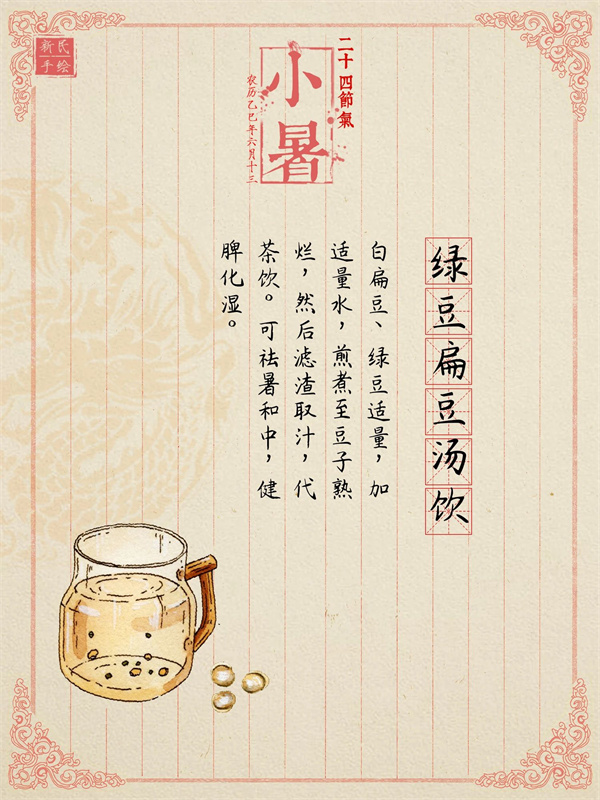 新民
手绘
二十四節氣
小暑
农历乙巳年六月十三
绿豆扁豆汤饮
白扁豆、绿豆适量，加
适量水，煎煮至豆子熟
烂，然后滤渣取汁，代
茶饮。可祛暑和中，健
脾化湿。